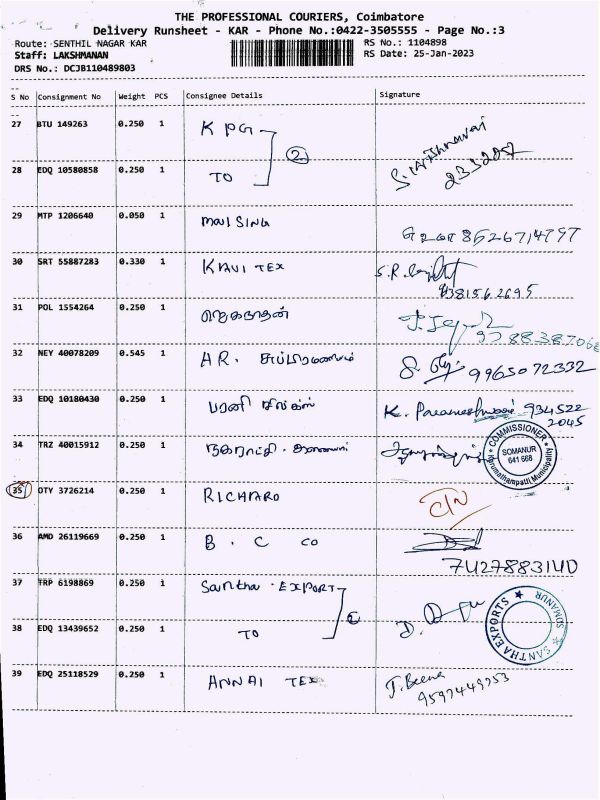 THE PROFESSIONAL COURIERS, Coimbatore
Delivery Runsheet - KAR - Phone No.:0422-3505555 - Page No.:3
Route: SENTHIL NAGAR KAR
RS No.: 1104898
Staff: LAKSHMANAN
RS Date: 25-Jan-2023
DRS No.: DCJB110489803
S No Consignment No Weight PCS Consignee Details Signature
27 BTU 149263 0.250 1 KPG
2
28 EDQ 10580858 0.250 1 TO
29 MTP 1206640 0.050 1 8526714797
30 SRT 55887283 0.330 1 KAVI TEX S.R.
9381562695
31 POL 1554264 0.250 1 ஜெகநாதன்
9788387068
32 NEY 40078209 0.545 1 AR. சுப்பிரமணியம் 9965072332
33 EDQ 10180430 0.250 1 பரணி சில்க்ஸ் K. Parameshwari 934522
2045
34 TRZ 40015912 0.250 1 நகராட்சி
COMMISSIONER
SOMANUR
641 668
Karumathampatti Municipality
35 OTY 3726214 0.250 1 RICHARD
C/N
36 AMD 26119669 0.250 1 B. C CO
7427883140
37 TRP 6198869 0.250 1 Santha EXPORT
38 EDQ 13439652 0.250 1 TO
SANTHA EXPORTS
SOMANUR
39 EDQ 25118529 0.250 1 ANNAI TEX J. Beena
9597449753